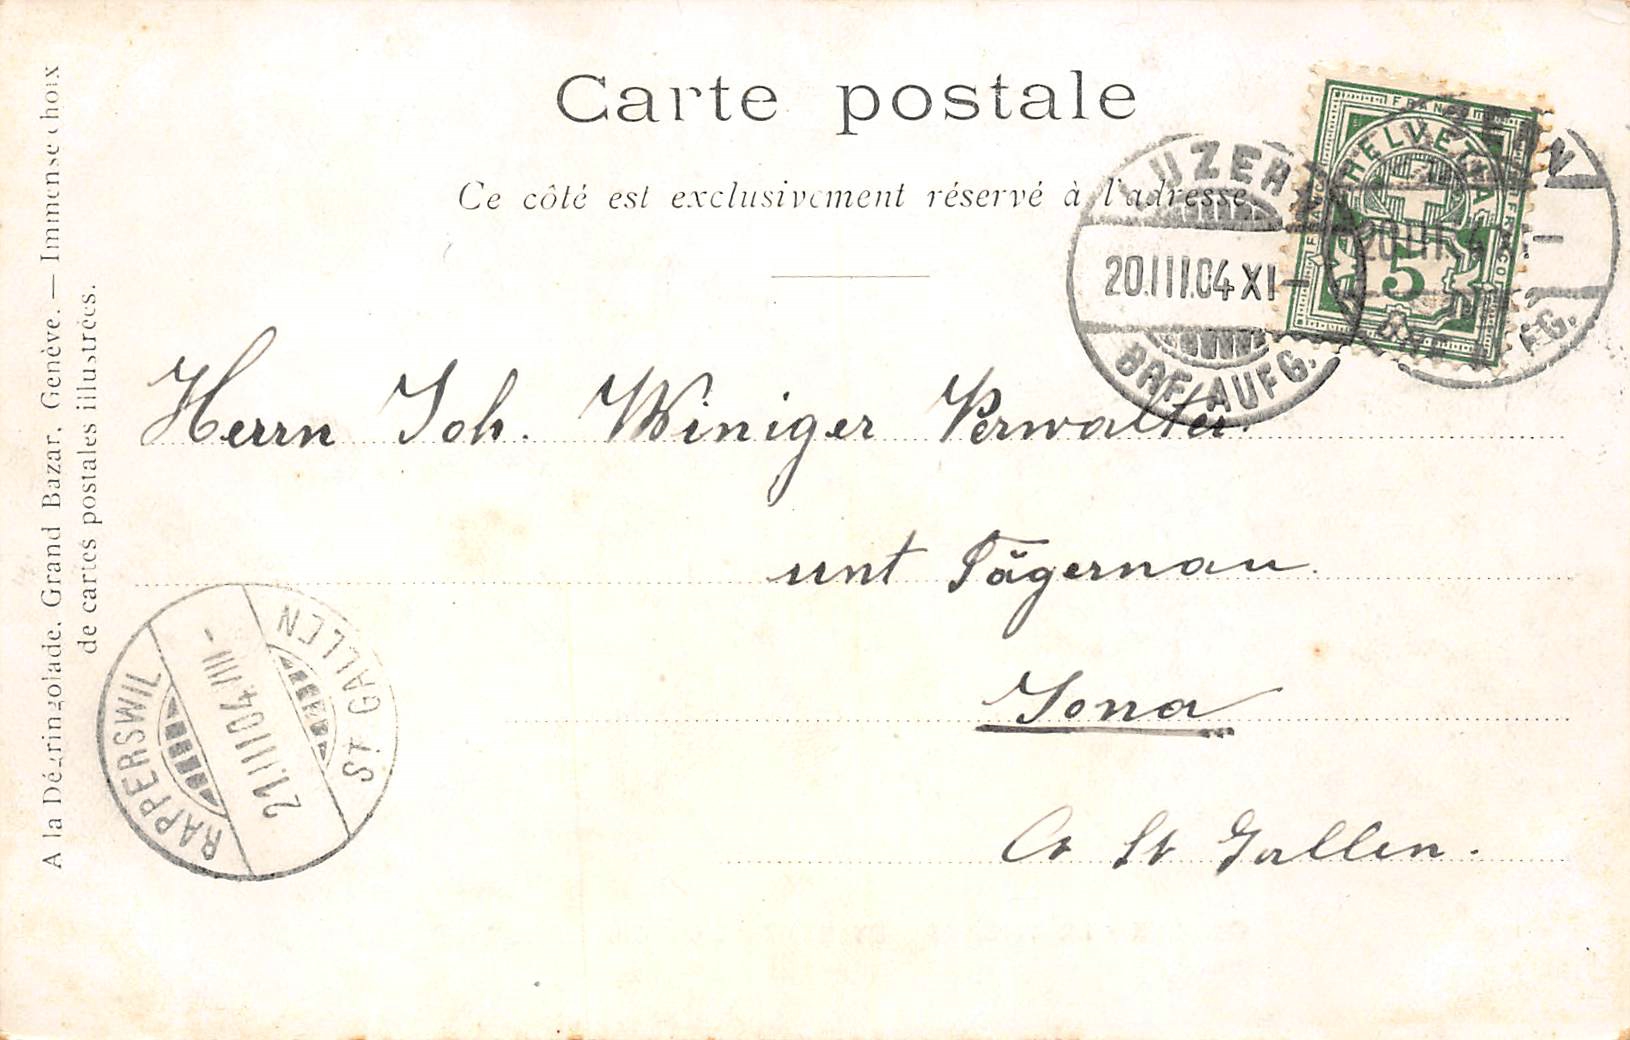 Carte postale
Ce côté est exclusivement réservé à l'adresse
LUZERN
20.III.04 XI-
BRF. AUFG.
FRANCO
HELVETIA
FRANCO
FRANCO
5
LUZERN
20.III.04
AUFG.
Herrn Joh. Winiger Verwalter
unt Tägernau.
Jona
Ct St Gallen.
RAPPERSWIL
21.III 04.VIII-
ST. GALLEN
A la Dégringolade. Grand Bazar. Genève. — Immense choix
de cartes postales illustrées.